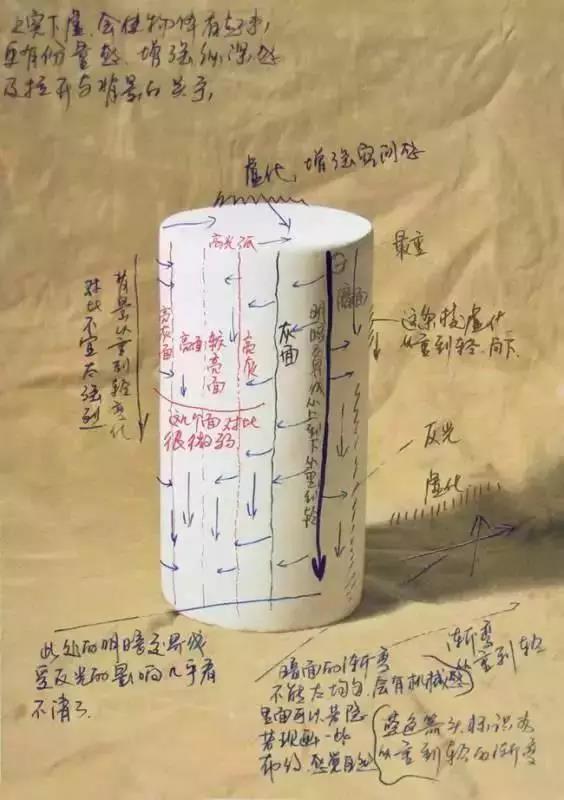 上实下虚.会使物体有
更有份量感、增强纵深感
及拉开与背景的关系,
虚化,增强空间感
高光弧
最重
背景从重到轻变化
对比不宜太强烈
亮灰面
较亮面
亮灰
灰面
明暗交界线从上到下从重到轻
暗面
这条线虚化
从重到轻.向下
这几个面对比
很微弱
反光
虚化
此处的明暗交界线
受反光的影响几乎看
不清了
渐变
从重到轻
暗面的渐变
不能太均匀,会有机械感
里面可以若隐
若现画一些
布纹,感觉自然
蓝色箭头标识为
从重到轻的渐变